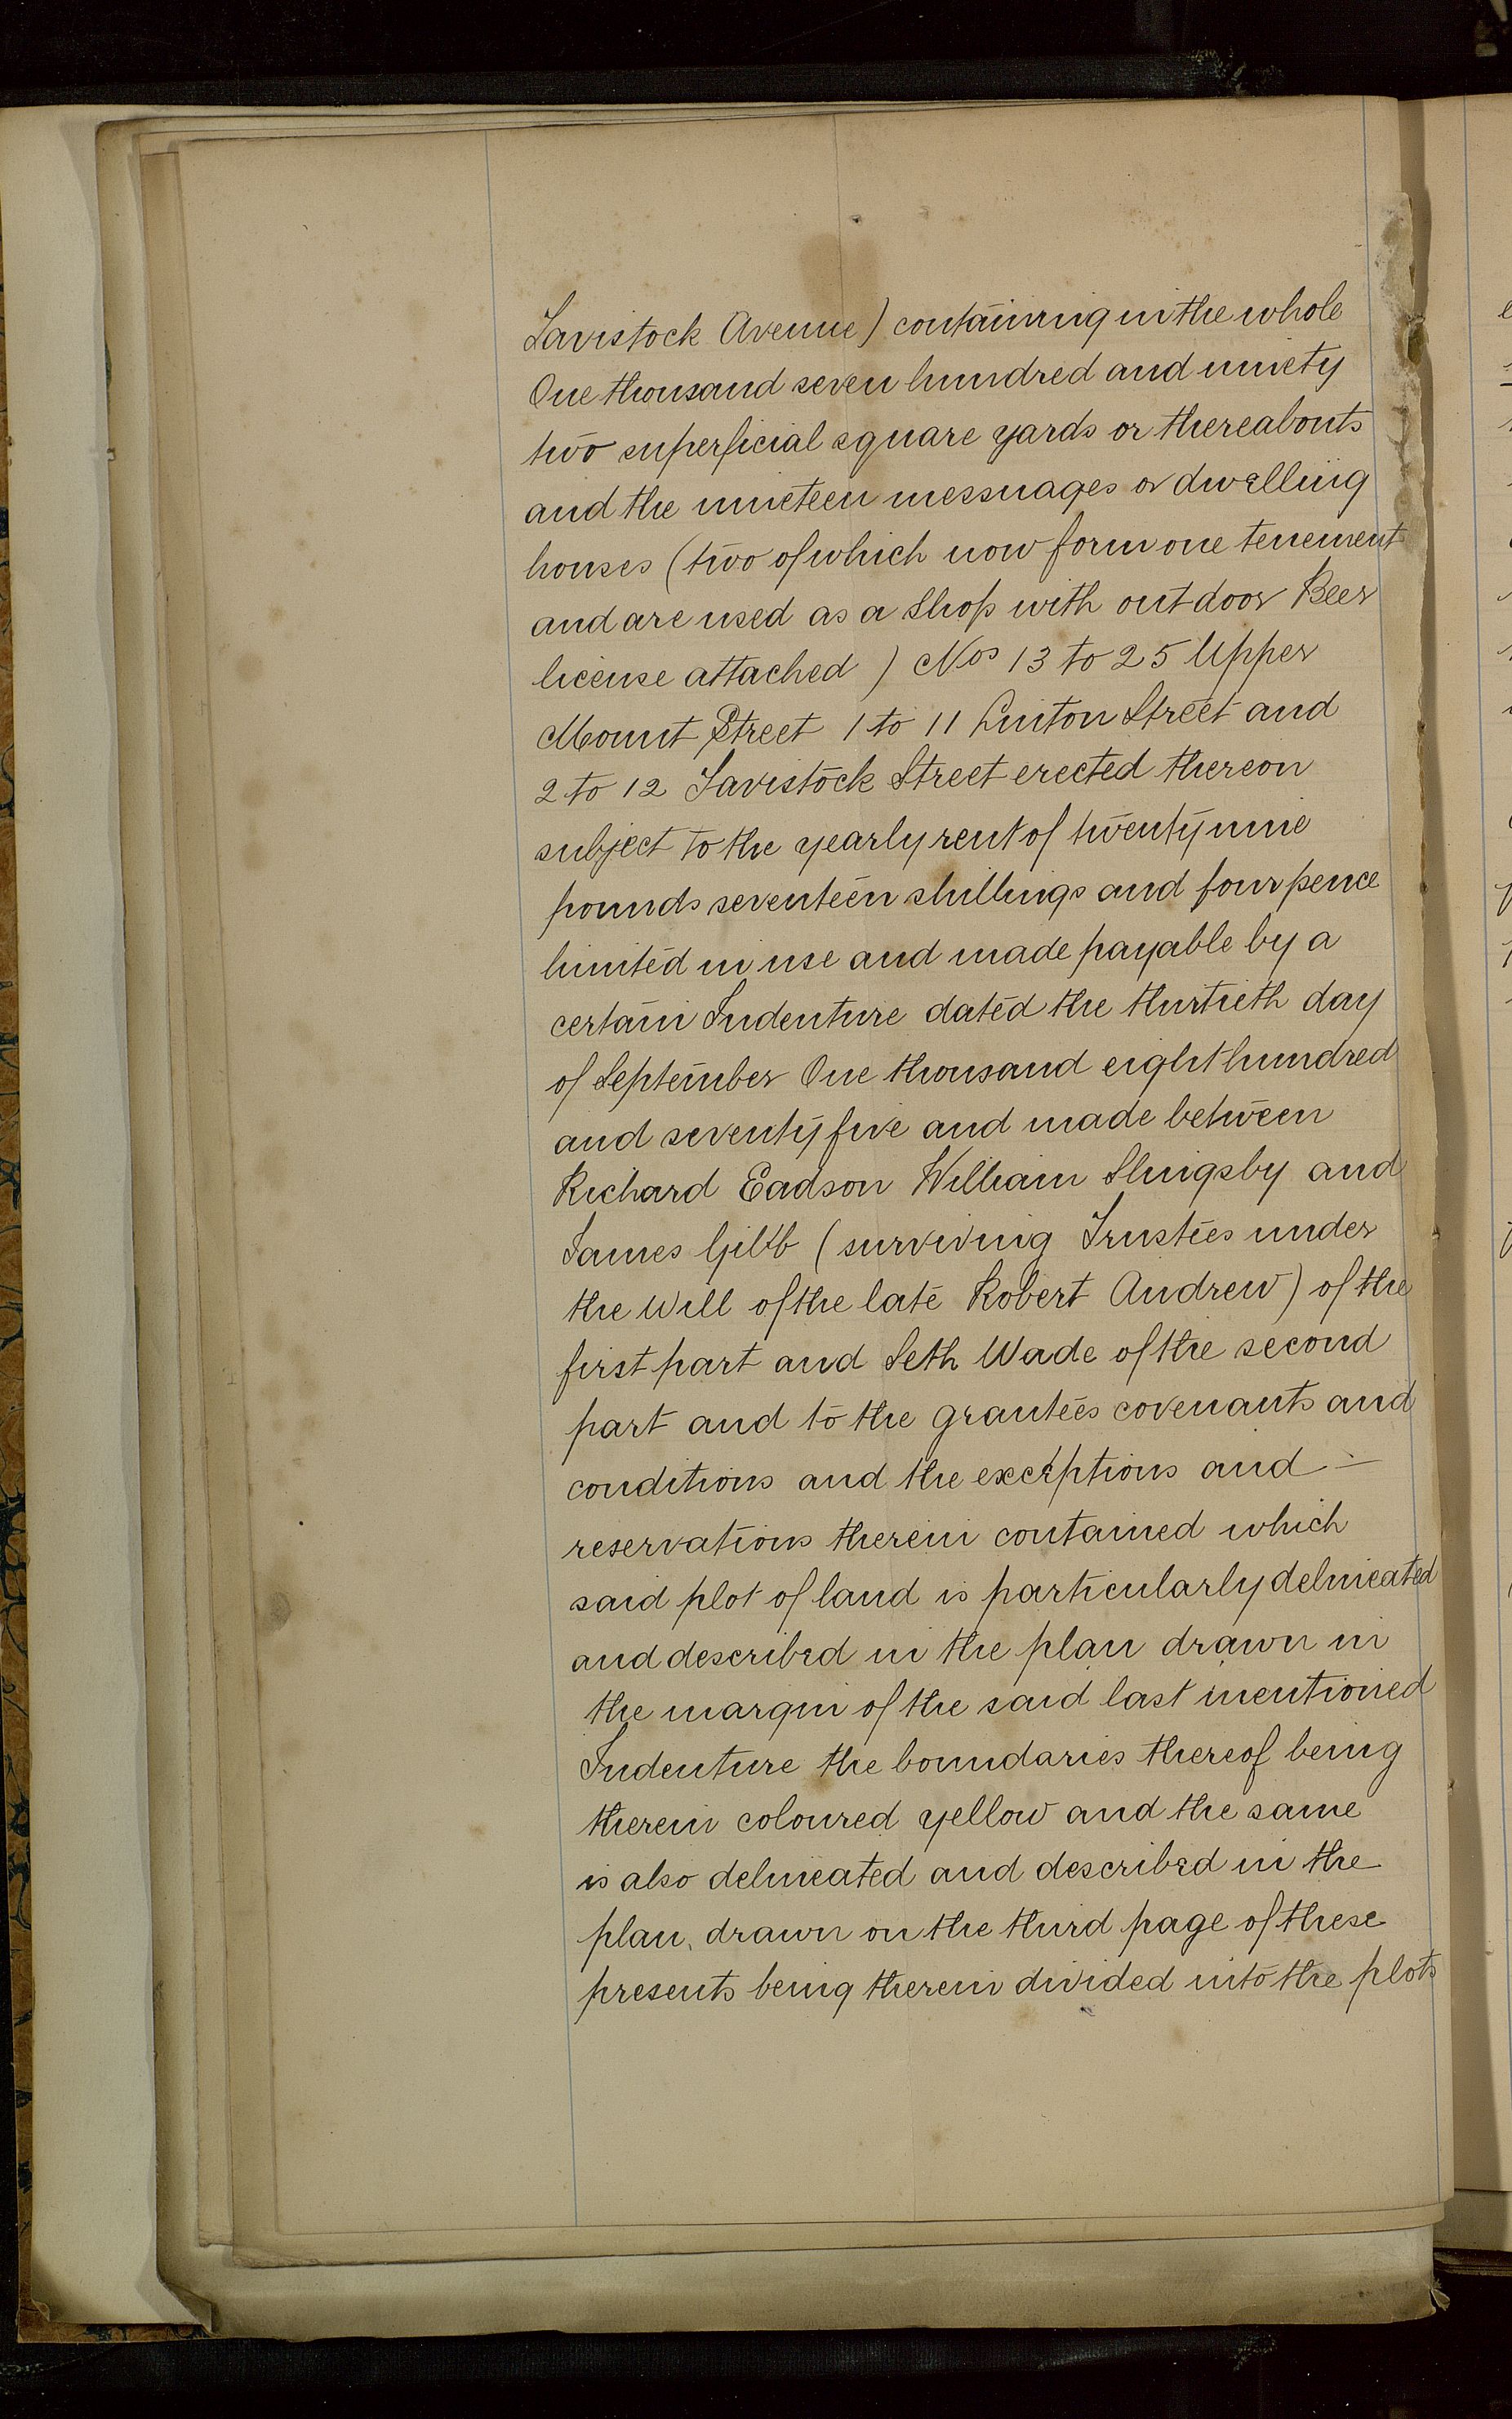 Tavistock Avenue) containing in the whole
One thousand seven hundred and ninety
two superficial square yards or thereabouts
and the nineteen messuages or dwelling
houses (two of which now form one tenement
and are used as a Shop with outdoor Beer
license attached) Nos 13 to 25 Upper
Mount Street 1 to 11 Linton Street and
2 to 12 Tavistock Street erected thereon
subject to the yearly rent of twenty nine
pounds seventeen shillings and four pence
limited in use and made payable by a
certain Indenture dated the thirtieth day
of September One thousand eight hundred
and seventy five and made between
Richard Eadson William Slingsby and
James Gibb (surviving Trustees under
the Will of the late Robert Andrew) of the
first part and Seth Wade of the second
part and to the grantees covenants and
conditions and the exceptions and —
reservations therein contained which
said plot of land is particularly delineated
and described in the plan drawn in
the margin of the said last mentioned
Indenture the boundaries thereof being
therein coloured yellow and the same
is also delineated and described in the
plan, drawn on the third page of these
presents being therein divided into the plots